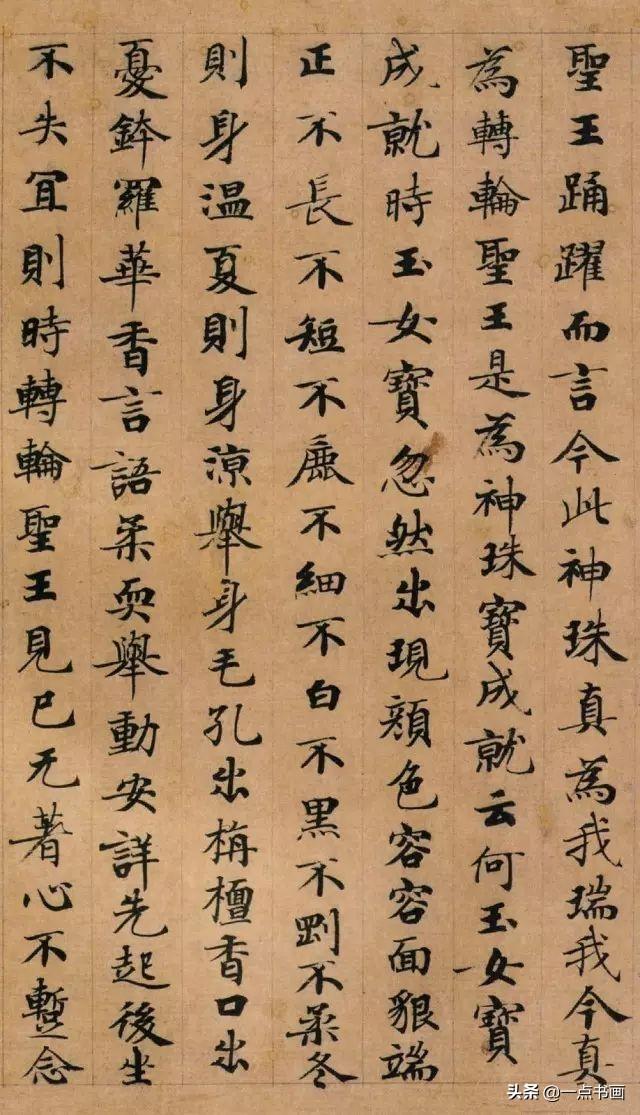 聖王踊躍而言今此神珠真為我瑞我今真
為轉輪聖王是為神珠寶成就云何玉女寶
成就時玉女寶忽然出現顏色容容面貌端
正不長不短不麁不細不白不黑不剛不柔冬
則身温夏則身涼舉身毛孔出栴檀香口出
憂鉢羅華香言語柔耎舉動安詳先起後坐
不失宜則時轉輪聖王見已无著心不蹔念
头条 @一点书画